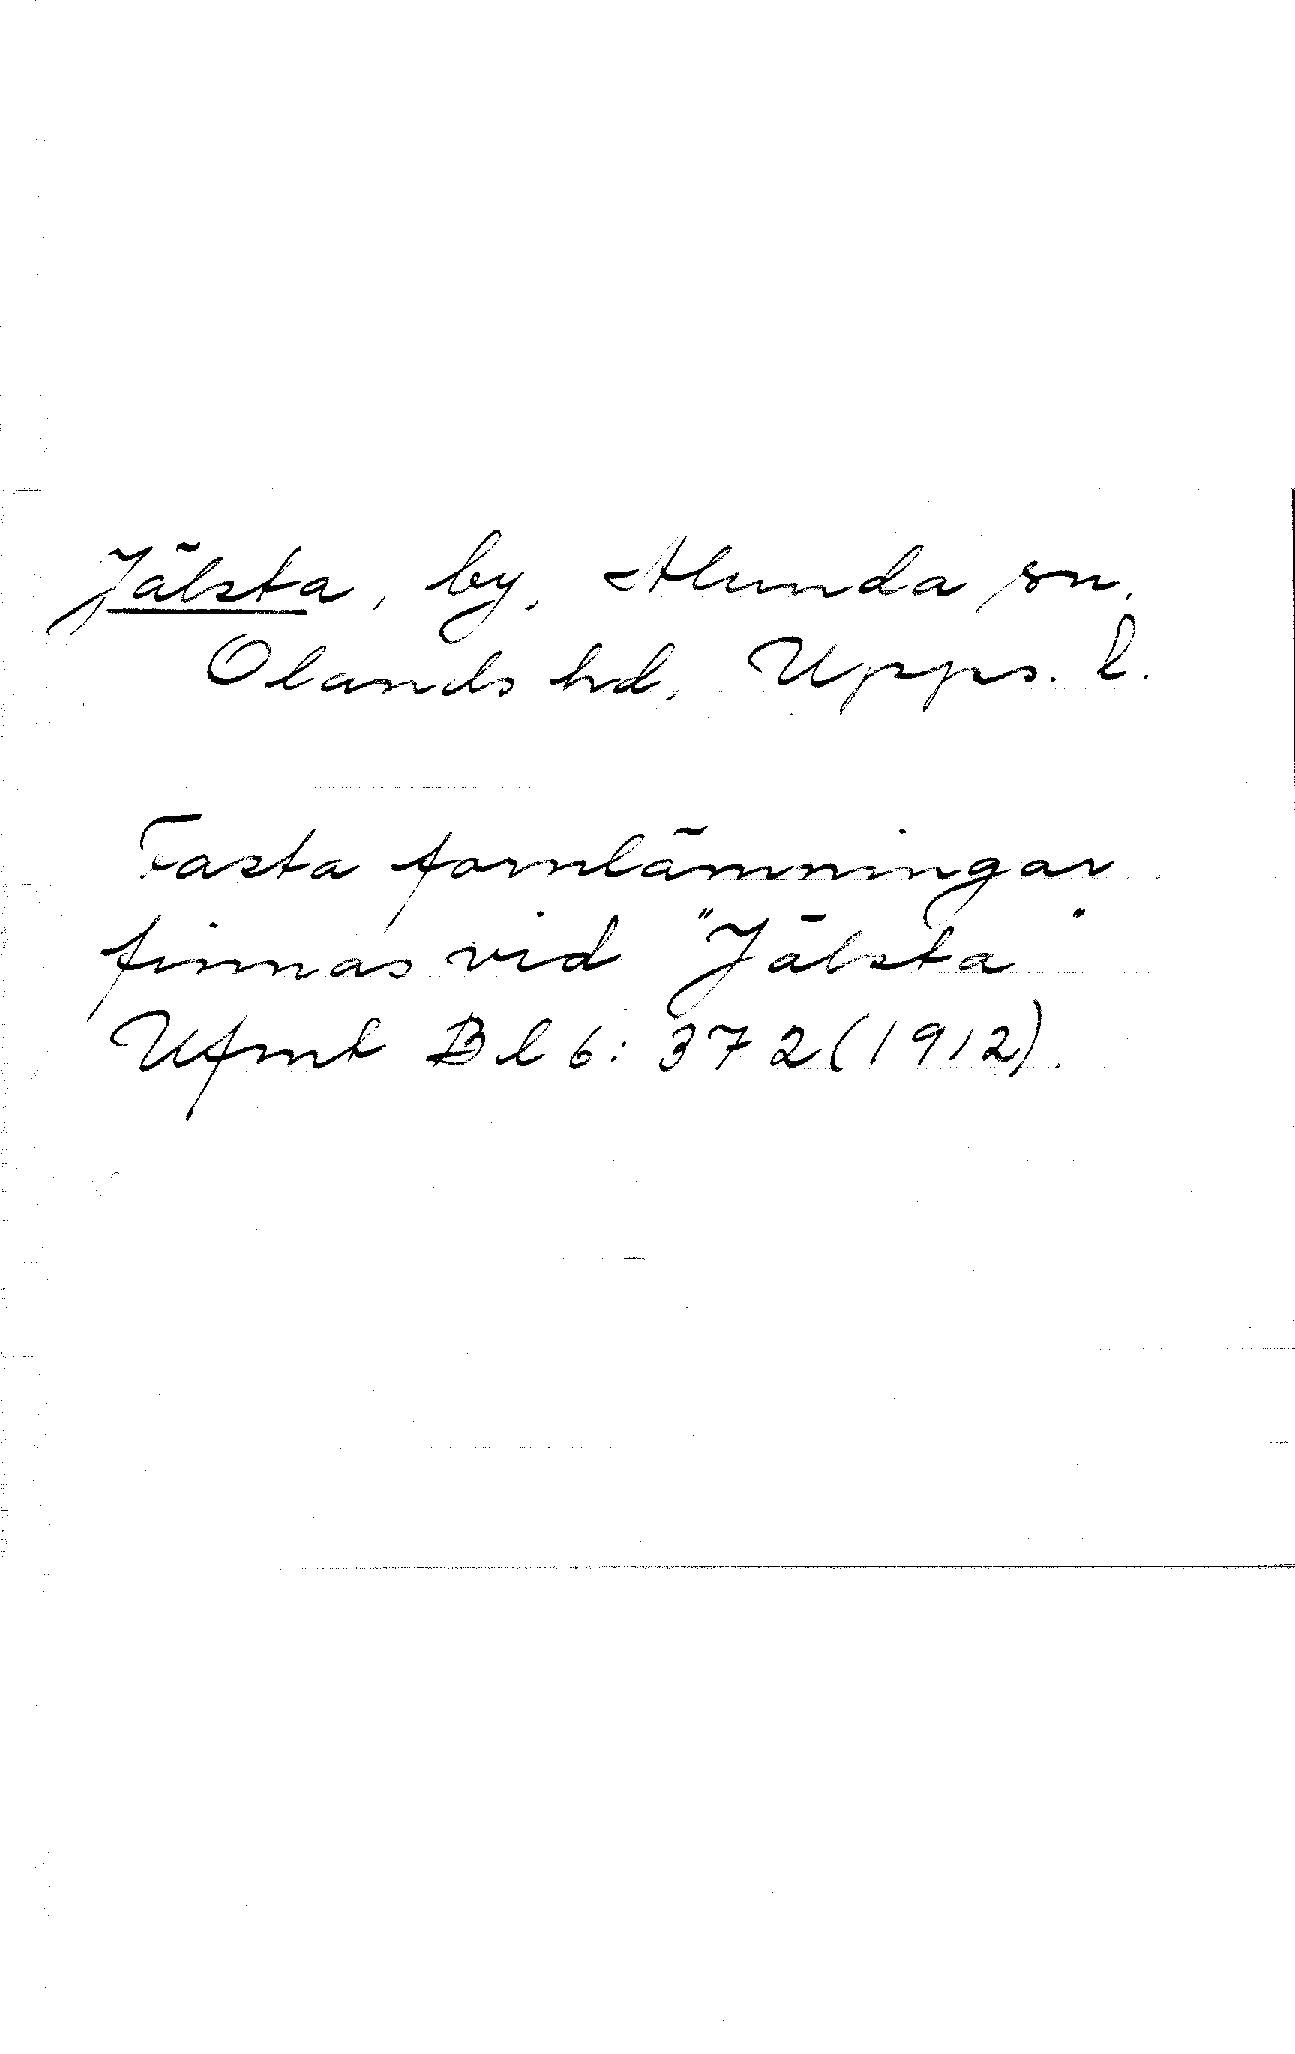 Jälsta, by, Alunda sn.
Olands hd, Upps. l.
Fasta fornlämningar
finnas vid "Jälsta"
Ufmt Bl 6: 372 (1912).